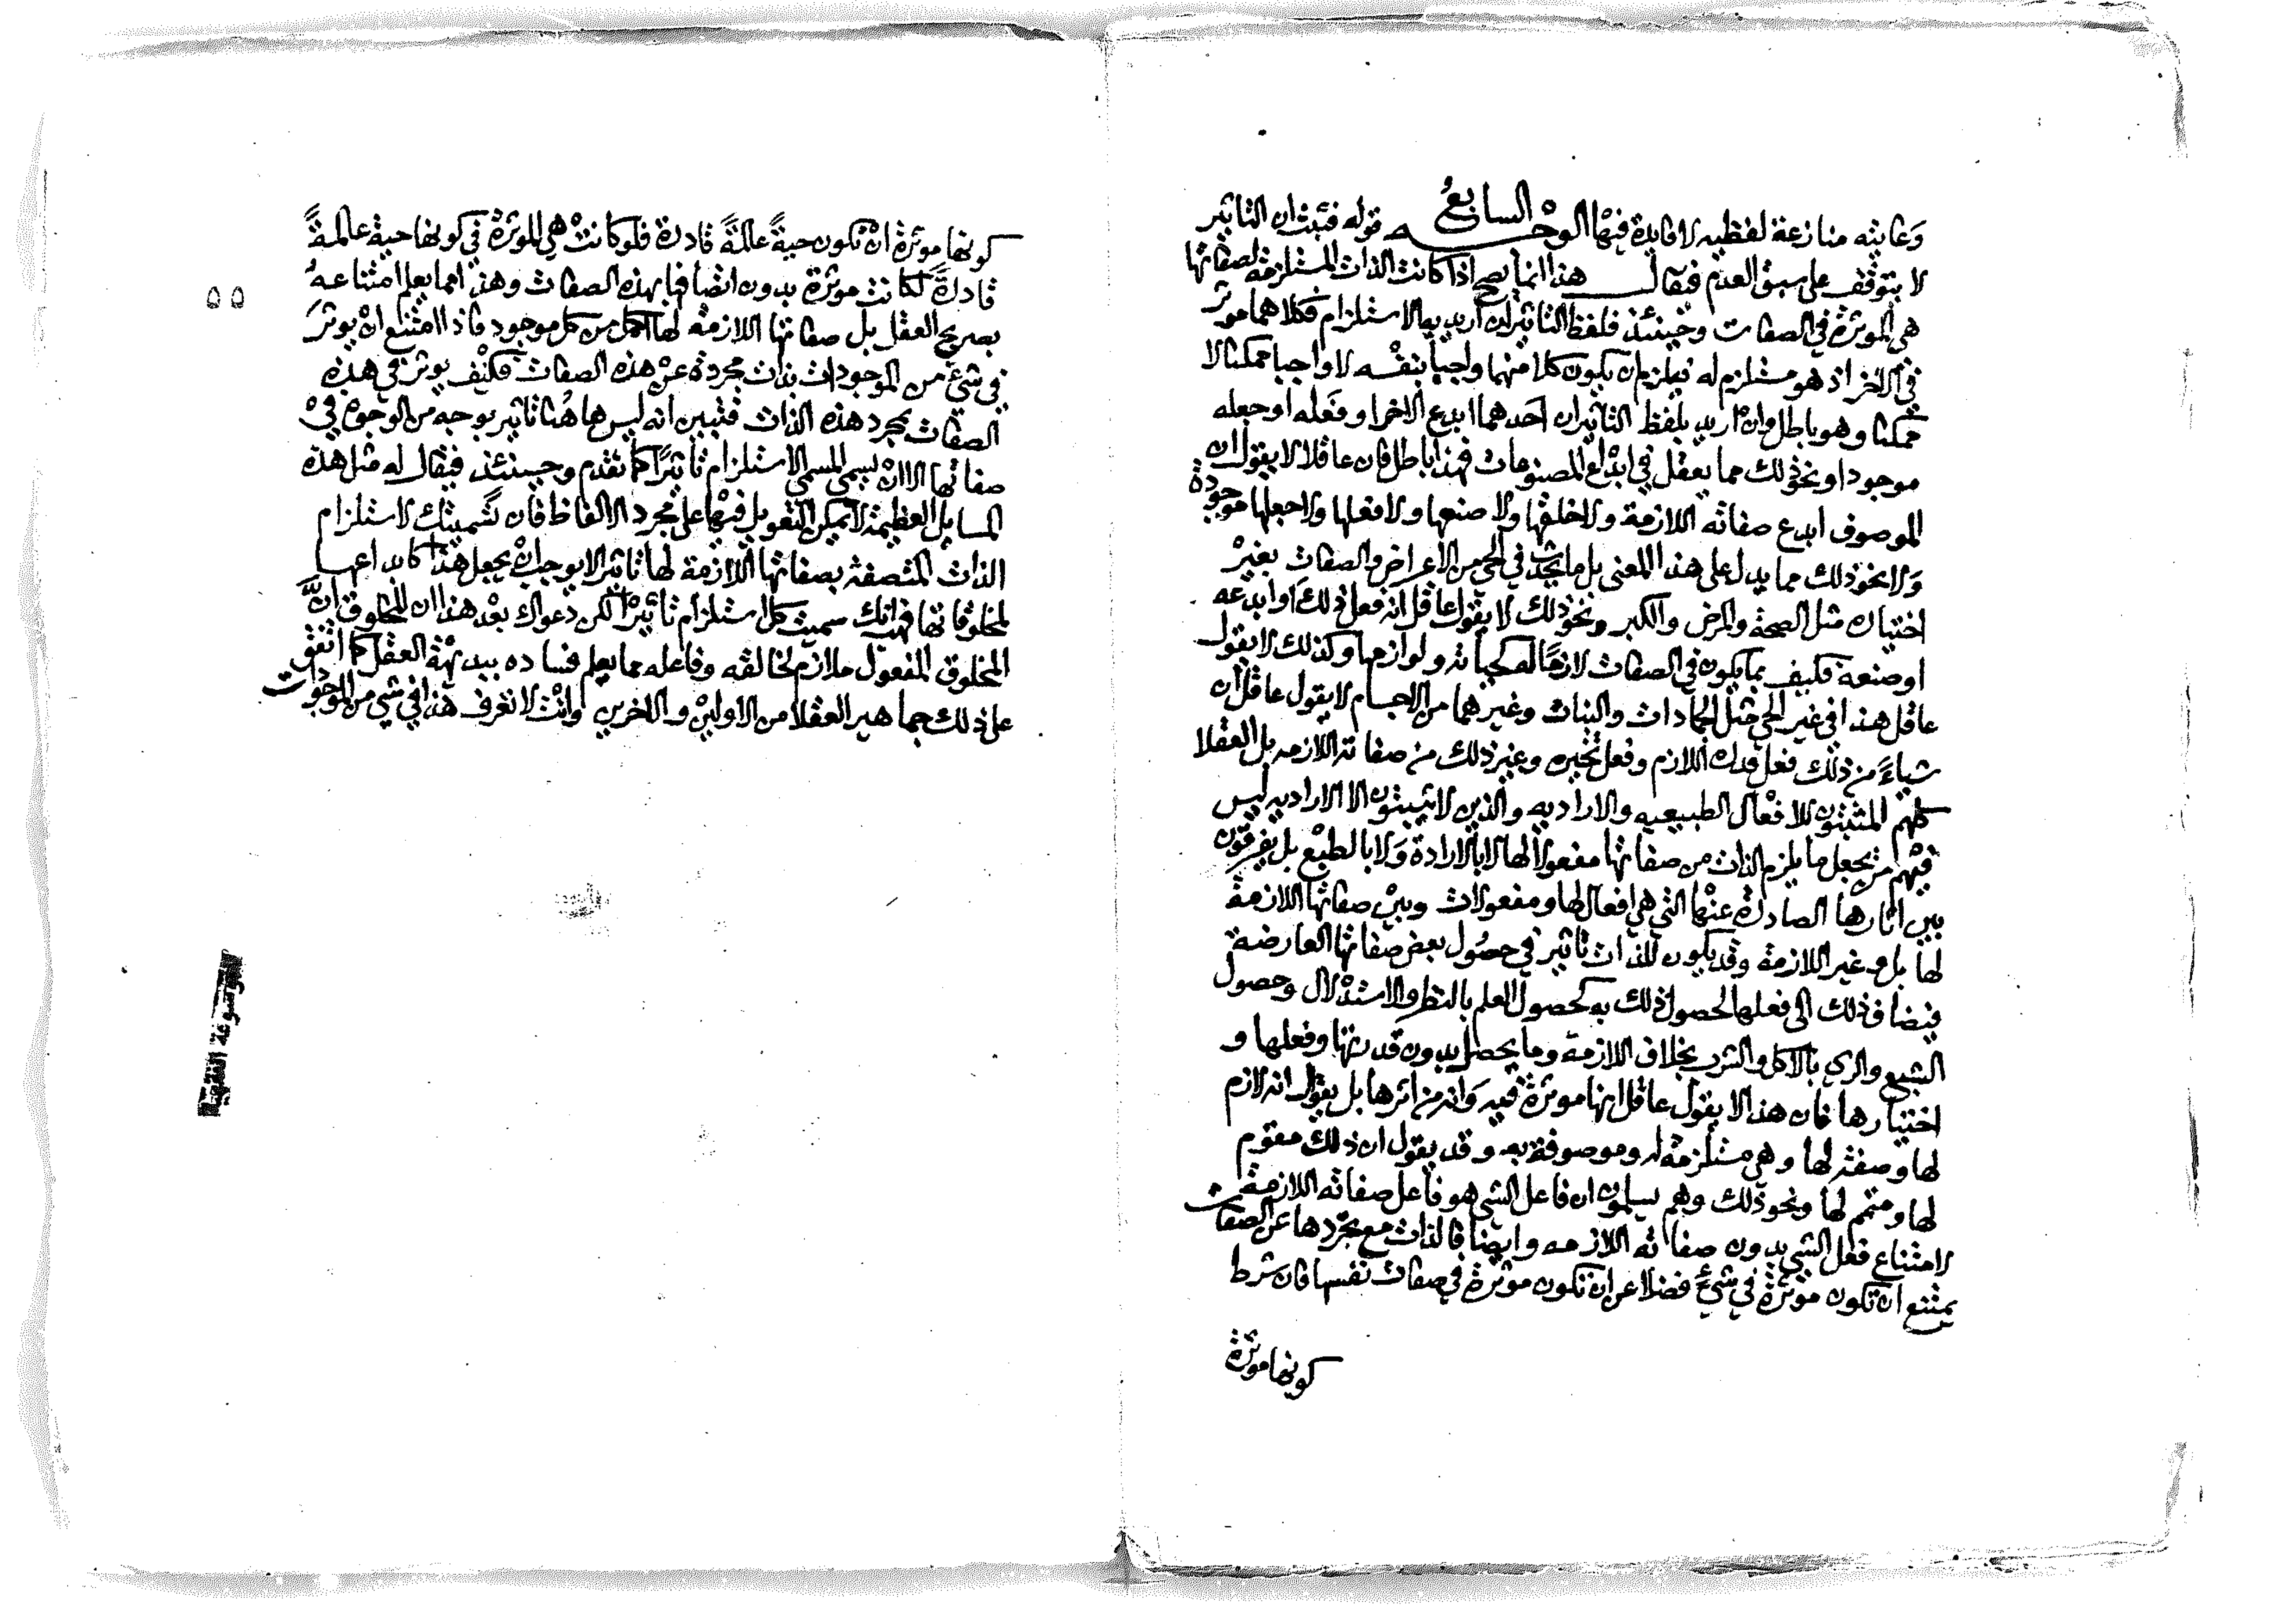 وغايته منازعة لفظيه لا فايدة فيها الوجه السابع قوله فثبت ان التاثير
لا يتوقف على سبق العدم فيقال هذا انما يصح اذا كانت الذات المستلزمة لصفاتها
هي الموثرة في الصفات وحينئذ فلفظ التاثير ان اريد به الاستلزام فكلاهما موثر
في الاخر اذ هو مستلزم له فيلزم ان يكون كلا منهما واجبا بنفسه لا واجبا ممكنا لا
ممكنا وهو باطل وان اريد بلفظ التاثير ان احدهما ابدع الاخر او فعله او جعله
موجودا او نحو ذلك مما يعقل في ابداع المصنوعات فهذا باطل فان عاقلا لا يقول ان
الموصوف ابدع صفاته اللازمة ولا خلقها ولا صنعها ولا فعلها ولا جعلها موجودة
ولا نحو ذلك مما يدل على هذا المعنى بل ما يحدث في الحي من الاعراض والصفات بغير
اختياره مثل الصحة والمرض والكبر ونحو ذلك لا يقول عاقل انه فعل ذلك او ابدعه
او صنعه فكيف بما يكون في الصفات لازما له كحياته ولوازمها وكذلك لا يقول
عاقل هذا في غير الحي مثل الجمادات والنبات وغيرهما من الاجسام لا يقول عاقل ان
شياء من ذلك فعل قدره اللازم وفعل تحيزه وغير ذلك من صفاته اللازمه بل العقلا
كلهم المثبتون للافعال الطبيعيه والاراديه والذين لا يثبتون الا الاراديه ليس
فيهم من يجعل ما يلزم الذات من صفاتها مفعولا لها لا بالارادة ولا بالطبع بل يفرقون
بين اثارها الصادرة عنها التي هي افعال لها ومفعولات وبين صفاتها اللازمة
لها بل وغير اللازمة وقد يكون للذات تاثير في حصول بعض صفاتها العارضة
فيضاف ذلك الى فعلها لحصول ذلك به كحصول العلم بالنظر والاستدلال وحصول
الشبع والري بالاكل والشرب بخلاف اللازمة وما يحصل بدون قدرتها وفعلها و
اختيارها فان هذا لا يقول عاقل انها موثرة فيه وانه من اثرها بل يقول انه لازم
لها وصفة لها وهي مستلزمة له وموصوفة به وقد يقول ان ذلك مقوم
لها ومتمم لها ونحو ذلك وهم يسلمون ان فاعل الشي هو فاعل صفاته اللازمة
لامتناع فعل الشي بدون صفاته اللازمه وايضا فالذات مع تجردها عن الصفات
يمتنع ان تكون موثرة في شيء فضلا عن ان تكون موثرة في صفات نفسها فان شرط
كونها موثرة
كونها موثرة ان تكون حية عالمة قادرة فلو كانت هي الموثرة في كونها حية عالمة
قادرة لكانت موثرة بدون اتصافها بهذه الصفات وهذا مما يعلم امتناعه
بصريح العقل بل صفاتها اللازمة لها اكمل من كل موجود فاذا امتنع ان يوثر
في شيء من الموجودات بذات مجردة عن هذه الصفات فكيف يوثر في هذه
الصفات بمجرد هذه الذات فتبين انه ليس هاهنا تاثير بوجه من الوجوه في
صفاتها الا ان يسمي المسمي الاستلزام تاثيرا كما تقدم وحينئذ فيقال له مثل هذه
المسايل العظيمة لا يمكن التعويل فيها على مجرد الالفاظ فان تسميتك لاستلزام
الذات المتصفة بصفاتها اللازمة لها تاثيرا لا يوجب ان يجعل هذا كابداعها
لمخلوقاتها فهب انك سميت كل استلزام تاثيرا لكن دعواك بعد هذا ان المخلوق ان
المخلوق المفعول ملازم لخالقه وفاعله مما يعلم فساده ببديهة العقل كما اتفق
على ذلك جماهير العقلا من الاولين والاخرين وانت لا تعرف هذا في شي من الموجودات
٥٥
الموسوعة الفقهية